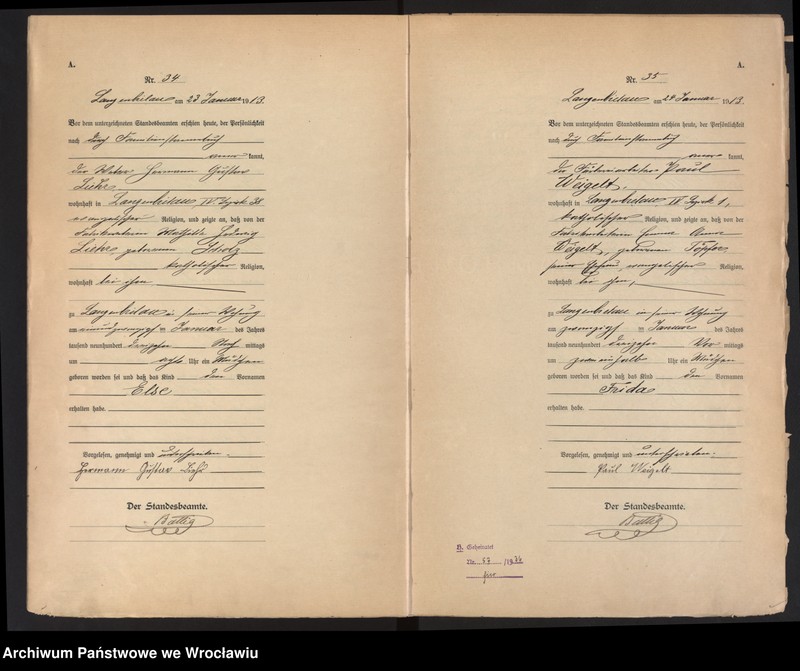 A.
Nr. 34
Langenbielau am 23 Januar 1913.
Vor dem unterzeichneten Standesbeamten erschien heute, der Persönlichkeit
nach durch Familienstammbuch
kannt,
der Weber Hermann Gustav
Liehr
wohnhaft in Langenbielau IV Bezirk
evangelischer Religion, und zeigte an, daß von der
Fabrikarbeiterin Mathilde Hedwig
Liehr geborenen Scholz
katholischer Religion,
wohnhaft bei ihm
zu Langenbielau in seiner Wohnung
am einundzwanzigsten Januar des Jahres
tausend neunhundert dreizehn Nachmittags
um acht Uhr ein Mädchen
geboren worden sei und daß das Kind den Vornamen
Else
erhalten habe.
Vorgelesen, genehmigt und unterschrieben.
Hermann Gustav Liehr
Der Standesbeamte.
Battig
A.
Nr. 35
Langenbielau am 24 Januar 1913.
Vor dem unterzeichneten Standesbeamten erschien heute, der Persönlichkeit
nach durch Familienstammbuch
kannt,
der Färbereiarbeiter Paul
Weigelt,
wohnhaft in Langenbielau IV Bezirk 1,
katholischer Religion, und zeigte an, daß von der
Fabrikarbeiterin Emma
Weigelt, geborenen Töpfer
seiner Ehefrau, evangelischer Religion,
wohnhaft bei ihm,
zu Langenbielau in seiner Wohnung
am zwanzigsten Januar des Jahres
tausend neunhundert dreizehn Vormittags
um Uhr ein Mädchen
geboren worden sei und daß das Kind den Vornamen
Frida
erhalten habe.
Vorgelesen, genehmigt und unterschrieben.
Paul Weigelt
Der Standesbeamte.
Battig
H. Geheiratet
Nr.
hier
Archiwum Państwowe we Wrocławiu